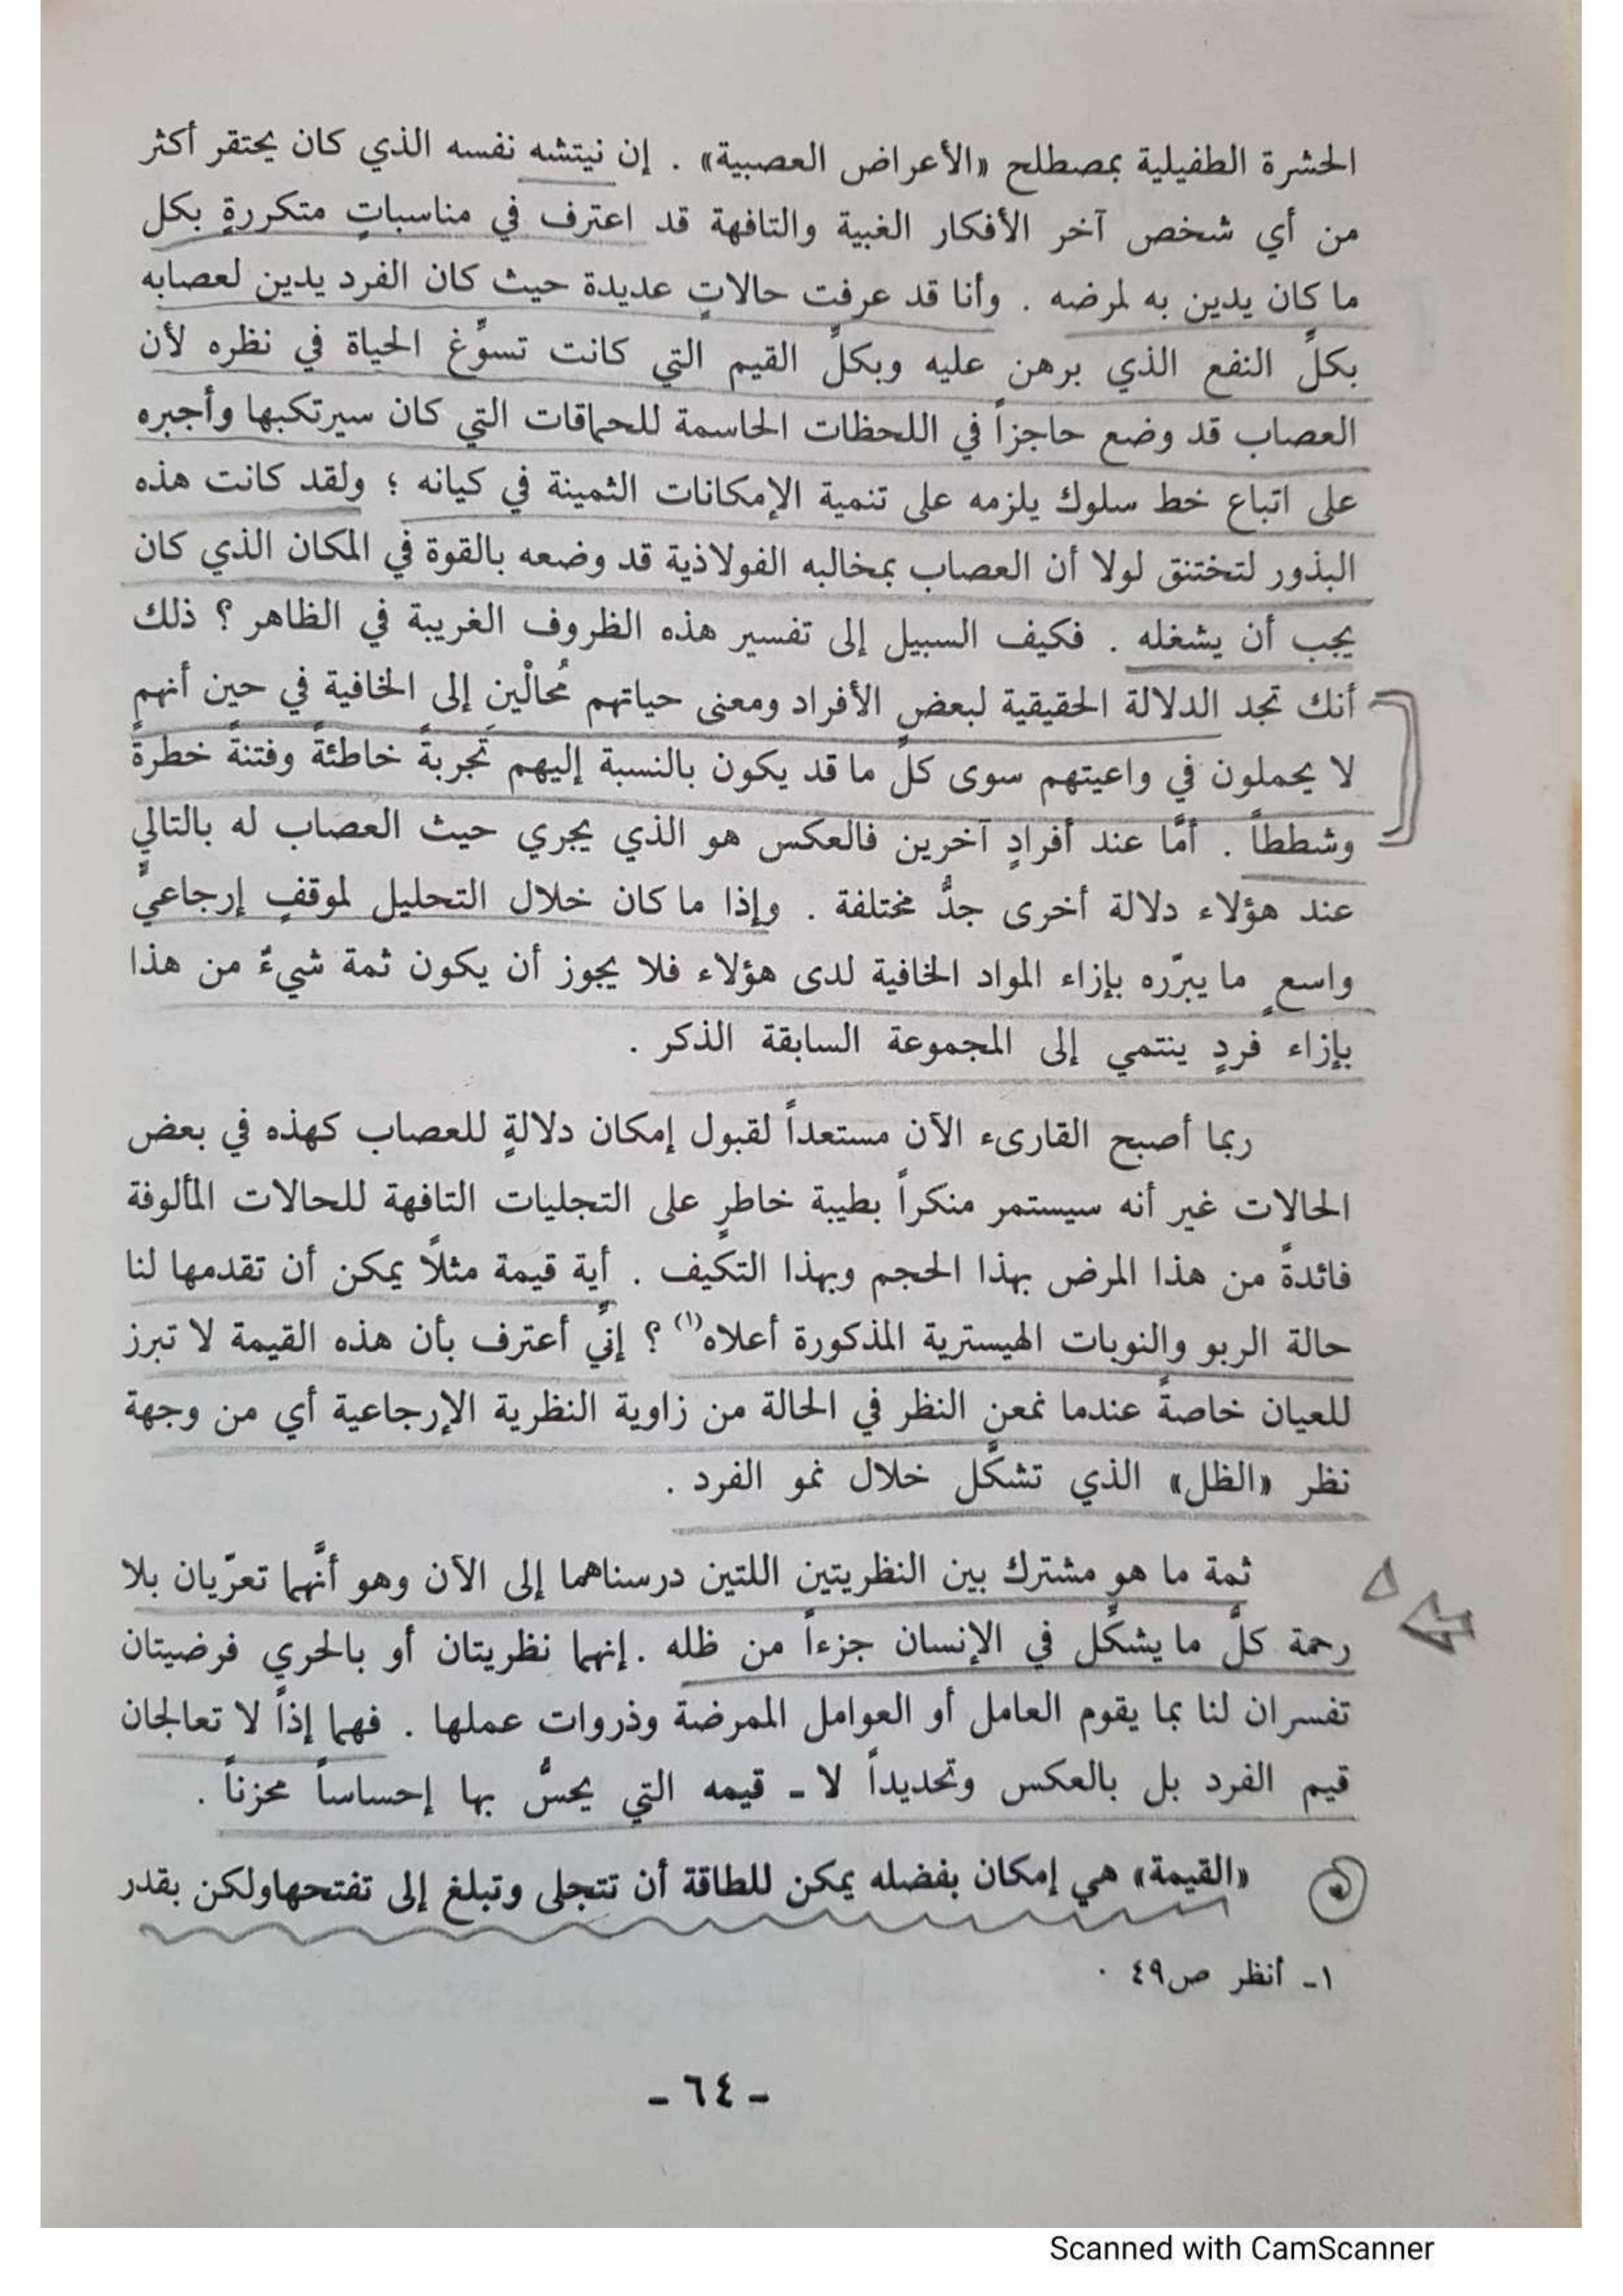 الحشرة الطفيلية بمصطلح «الأعراض العصبية» . إن نيتشه نفسه الذي كان يحتقر أكثر
من أي شخص آخر الأفكار الغبية والتافهة قد اعترف في مناسباتٍ متكررةٍ بكل
ما كان يدين به لمرضه . وأنا قد عرفت حالاتٍ عديدة حيث كان الفرد يدين لعصابه
بكلِّ النفع الذي برهن عليه وبكلِّ القيم التي كانت تسوِّغ الحياة في نظره لأن
العصاب قد وضع حاجزاً في اللحظات الحاسمة للحماقات التي كان سيرتكبها وأجبره
على اتباع خط سلوك يلزمه على تنمية الإمكانات الثمينة في كيانه ؛ ولقد كانت هذه
البذور لتختنق لولا أن العصاب بمخالبه الفولاذية قد وضعه بالقوة في المكان الذي كان
يجب أن يشغله . فكيف السبيل إلى تفسير هذه الظروف الغريبة في الظاهر ؟ ذلك
أنك تجد الدلالة الحقيقية لبعض الأفراد ومعنى حياتهم مُحالْين إلى الخافية في حين أنهم
لا يحملون في واعيتهم سوى كلِّ ما قد يكون بالنسبة إليهم تَجربةً خاطئةً وفتنةً خطرةً
وشططاً . أمَّا عند أفرادٍ آخرين فالعكس هو الذي يجري حيث العصاب له بالتالي
عند هؤلاء دلالة أخرى جدُّ مختلفة . وإذا ما كان خلال التحليل لموقفٍ إرجاعيٍّ
واسعٍ ما يبرّره بإزاء المواد الخافية لدى هؤلاء فلا يجوز أن يكون ثمة شيءٌ من هذا
بإزاء فردٍ ينتمي إلى المجموعة السابقة الذكر .
ربما أصبح القارىء الآن مستعداً لقبول إمكان دلالةٍ للعصاب كهذه في بعض
الحالات غير أنه سيستمر منكراً بطيبة خاطرٍ على التجليات التافهة للحالات المألوفة
فائدةً من هذا المرض بهذا الحجم وبهذا التكيف . أية قيمة مثلاً يمكن أن تقدمها لنا
حالة الربو والنوبات الهيسترية المذكورة أعلاه(١) ؟ إنّي أعترف بأن هذه القيمة لا تبرز
للعيان خاصةً عندما نمعن النظر في الحالة من زاوية النظرية الإرجاعية أي من وجهة
نظر «الظل» الذي تشكَّل خلال نمو الفرد .
ثمة ما هو مشترك بين النظريتين اللتين درسناهما إلى الآن وهو أنَّهما تعرّيان بلا
رحمة كلَّ ما يشكِّل في الإنسان جزءاً من ظله . إنهما نظريتان أو بالحري فرضيتان
تفسران لنا بما يقوم العامل أو العوامل الممرضة وذروات عملها . فهما إذاً لا تعالجان
قيم الفرد بل بالعكس وتحديداً لا ـ قيمه التي يحسُّ بها إحساساً محزناً .
«القيمة» هي إمكان بفضله يمكن للطاقة أن تتجلى وتبلغ إلى تفتحهاولكن بقدر
١ـ أنظر ص٤٩ .
ـ ٦٤ ـ
Scanned with CamScanner